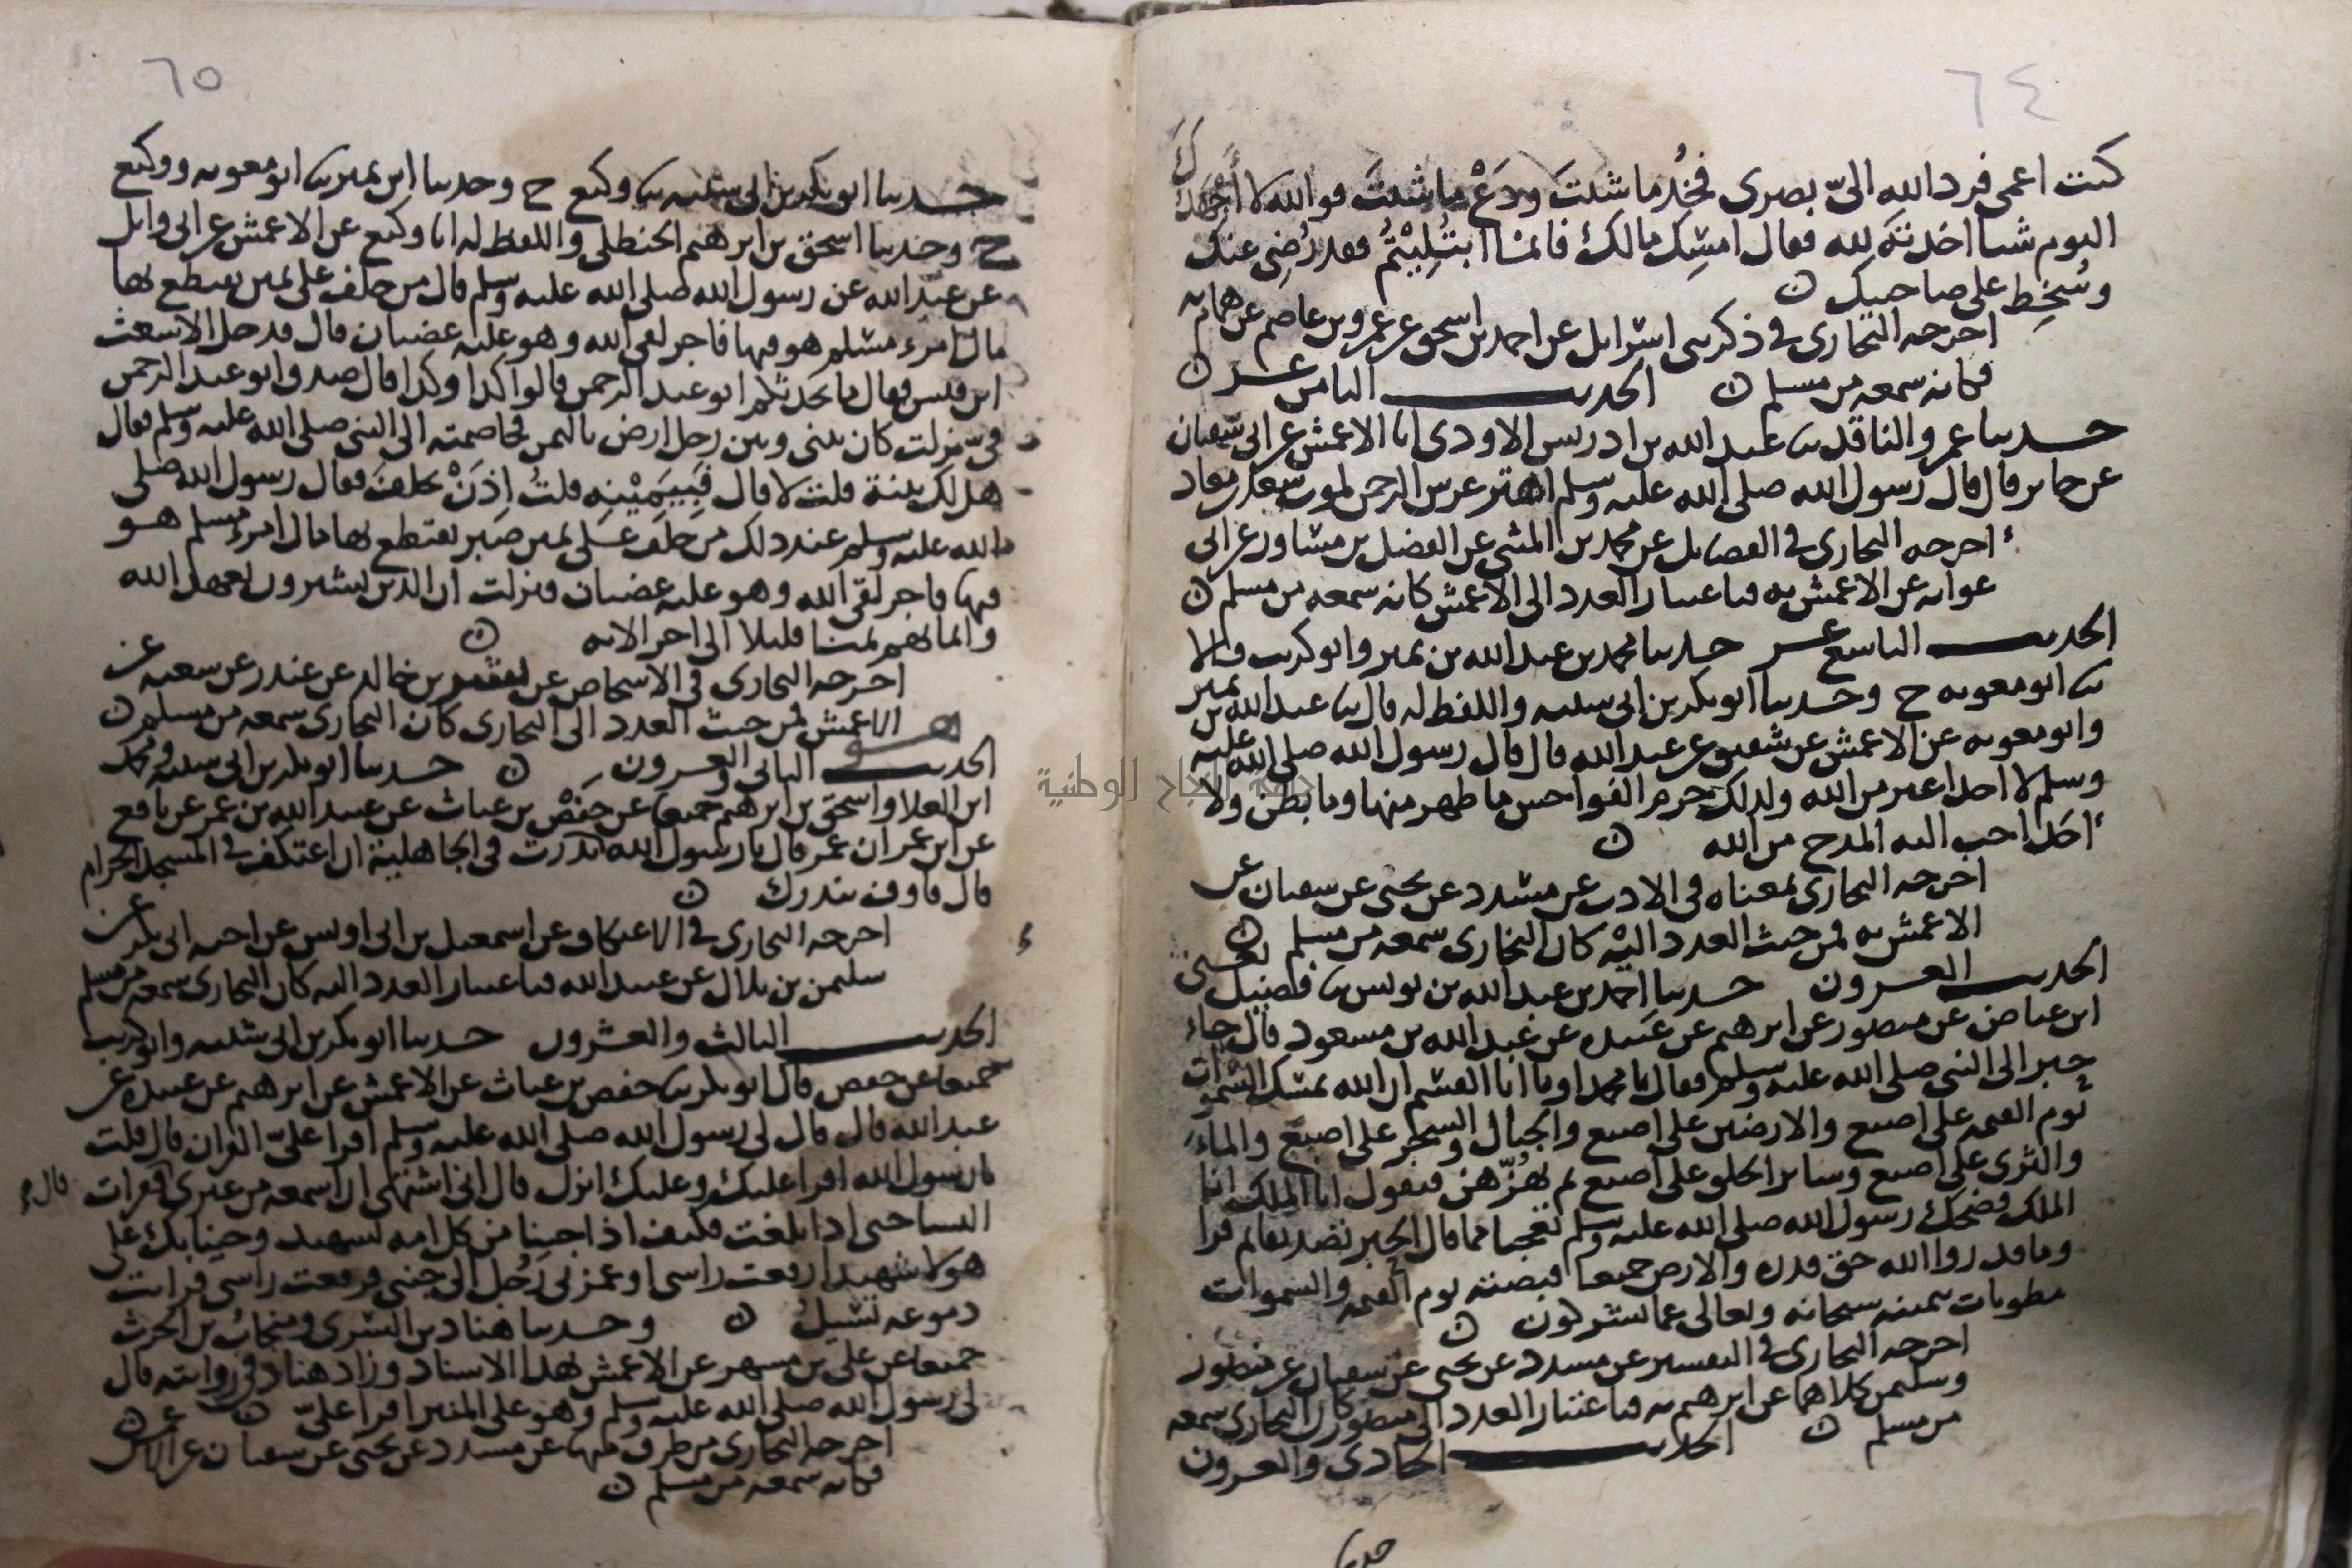 ٦٤
كنت اعمى فرد الله الىّ بصرى فخُذْ ما شئتَ ودَعْ ما شئتَ فوالله لا أَجهدُك
اليوم شيئا اخذتَه لله فقال امسِك مالك فانما ابتُلِيْتُم فقد رُضِى عنك
وسُخِط على صاحبيك ن
اخرجه البخارى فى ذكر بنى اسرايل عن احمد بن اسحق عن عمرو بن عاصم عن همام به
فكانه سمعه من مسلم ن الحديث الثامن عشر ن
حدثنا عمرو الناقد ثنا عبد الله بن ادريس الاودى انا الاعمش عن ابى سفيان
عن جابر قال قال رسول الله صلى الله عليه وسلم اهتز عرش الرحمن لموت سعد بن معاذ
اخرجه البخارى فى الفضايل عن محمد بن المثنى عن الفضل بن مساور عن ابى
عوانه عن الاعمش به فباعتبار العدد الى الاعمش كانه سمعه من مسلم ن
الحديث التاسع عشر حدثنا محمد بن عبد الله بن نمير وابو كريب قالا
ثنا ابو معويه ح وحدثنا ابو بكر بن ابى شيبه واللفظ له قال ثنا عبد الله بن نمير
وابو معويه عن الاعمش عن شقيق عن عبد الله قال قال رسول الله صلى الله عليه
وسلم لا احد اغير من الله ولذلك حرم الفواحش ما ظهر منها وما بطن ولا
احَد احب اليه المدح من الله ن
اخرجه البخارى بمعناه فى الادب عن مسدد عن يحيى عن سفيان عن
الاعمش به فمن حيث العدد اليْه كان البخارى سمعه من مسلم ن
الحديث العشرون حدثنا احمد بن عبد الله بن يونس ثنا فضيل يعنى
ابن عياض عن منصور عن ابرهيم عن عَبيده عن عبد الله بن مسعود قال جاء
حبر الى النبى صلى الله عليه وسلم فقال يا محمد او يا ابا القسم ان الله يمسك السموات
يوم القيمه على اصبع والارضين على اصبع والجبال والشجر على اصبع والماء
والثرى على اصبع وساير الخلق على اصبع ثم يهُزّهن فيقول انا الملك انا
الملك فضحك رسول الله صلى الله عليه وسلم تعجبا مما قال الحبر تصديقا له ثم قرا
وما قدروا الله حق قدره والارض جميعا قبضته يوم القيمه والسموات
مطويات بيمينه سبحانه وتعالى عما يشركون ن
اخرجه البخارى فى التفسير عن مسدد عن يحيى عن سفيان عن منصور
وسليمن كلاهما عن ابرهيم به فباعتبار العدد الى منصور كان البخارى سمعه
من مسلم ن الحديث الحادى والعشرون
حدثنا
٦٥
حدثنا ابو بكر بن ابى شيبه ثنا وكيع ح وحدثنا ابن نمير ثنا ابو معويه ووكيع
ح وحدثنا اسحق بن ابرهيم الحنظلى واللفظ له انا وكيع عن الاعمش عن ابى وايل
عن عبد الله عن رسول الله صلى الله عليه وسلم قال من حلف على يمين يقتطع بها
مال امرء مسلم هو فيها فاجر لقى الله وهو عليه غضبان قال فدخل الاشعث
ابن قيس فقال ما يحدثكم ابو عبد الرحمن قالوا كذا وكذا قال صدق ابو عبد الرحمن
فىّ نزلت كان بينى وبين رجل ارض باليمن فخاصمته الى النبى صلى الله عليه وسلم فقال
هل لك بينة قلت لا قال فَبِيَمِيْنِه قلتُ إذَنْ يحلفَ فقال رسول الله صلى
الله عليه وسلم عند ذلك من حَلَف عَلى يمين صَبر يقتطع بها مال امرء مسلم هو
فيها فاجر لقى الله وهو عليه غضبان فنزلت ان الذين يشترون بعهد الله
وايمانهم ثمنا قليلا الى اخر الايه ن
اخرجه البخارى فى الاشخاص عن بشر بن خالد عن غندر عن شعبه عن
الاعمش فمن حيث العدد الى البخارى كان البخارى سمعه من مسلم ن
الحديث الثانى والعشرون ن حدثنا ابو بكر بن ابى شيبه ومحمد
ابن العلا واسحق بن ابرهيم جميعا عن حَفْص بن غياث عن عبيد الله بن عمر عن نافع
عن ابن عمر ان عمر قال يا رسول الله نذرت فى الجاهلية ان اعتكف فى المسجد الحرام
قال فاوف بنذرك ن
اخرجه البخارى فى الاعتكاف عن اسمعيل بن ابى اويس عن اخيه ابى بكر عن
سليمن بن بلال عن عبيد الله فباعتبار العدد اليه كان البخارى سمعه من مسلم
الحديث الثالث والعشرون حدثنا ابو بكر بن ابى شيبه وابو كريب
جميعا عن حفص قال ابو بكر ثنا حفص بن غياث عن الاعمش عن ابرهيم عن عبيده عن
عبد الله قال قال لى رسول الله صلى الله عليه وسلم اقرا علىّ القران قال قلت
يا رسول الله اقرا عليك وعليك انزل قال انى اشتهى ان اسمعه من غيرى فقرات
النسا حتى اذا بلغت فكيف اذا جينا من كل امه بشهيد وجينا بك على
هولا شهيدا رفعت راسى او غمزنى رَجُل الى جنبى فرفعت راسى فرايت
دموعه تسيلُ ن وحدثنا هناد بن السرى ومنجاب بن الحرث
جميعا عن على بن مسهر عن الاعمش بهذا الاسناد وزاد هناد فى روايته قال
لى رسول الله صلى الله عليه وسلم وهو على المنبر اقرا علىّ ن
اخرجه البخارى من طرق منها عن مسدد عن يحيى عن سفيان عن الاعمش ن
فكانه سمعه من مسلم ن
جامعة النجاح الوطنية